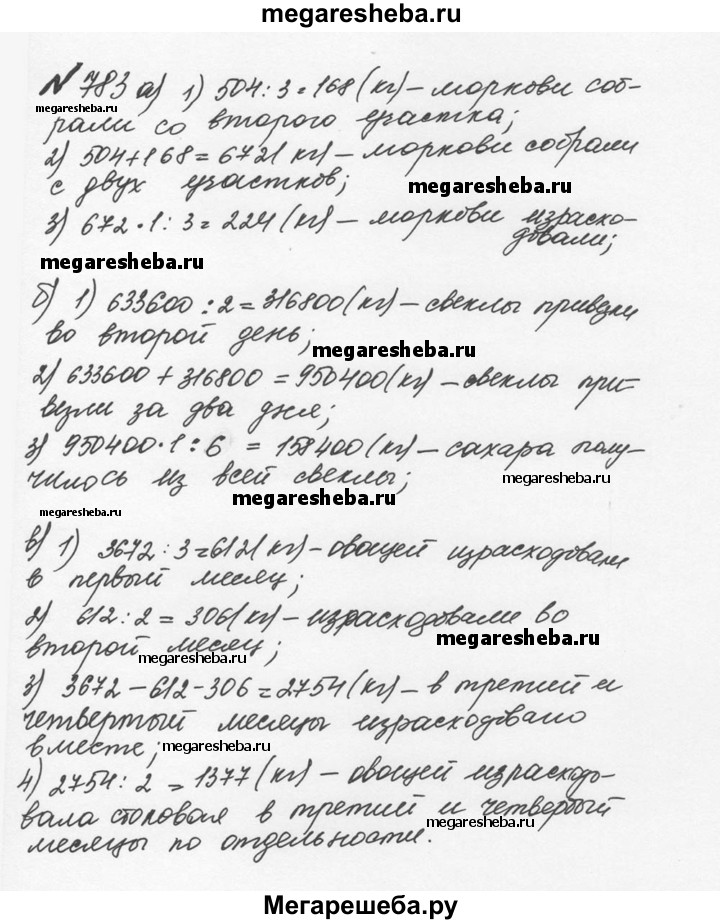 megaresheba.ru
№ 783 а) 1) 504 : 3 = 168 (кг) – моркови соб-
megaresheba.ru
рали со второго участка;
2) 504 + 168 = 672 (кг) – моркови собрали
с двух участков;
megaresheba.ru
3) 672 · 1 : 3 = 224 (кг) – моркови израсхо-
довали;
megaresheba.ru
б) 1) 633600 : 2 = 316800 (кг) – свеклы привезли
во второй день;
megaresheba.ru
2) 633600 + 316800 = 950400 (кг) – свеклы при-
везли за два дня;
3) 950400 · 1 : 6 = 158400 (кг) – сахара полу-
чилось из всей свеклы;
megaresheba.ru
megaresheba.ru
megaresheba.ru
в) 1) 3672 : 3 = 612 (кг) – овощей израсходовали
в первый месяц;
2) 612 : 2 = 306 (кг) – израсходовали во
второй месяц;
megaresheba.ru
megaresheba.ru
3) 3672 – 612 – 306 = 2754 (кг) – в третий и
четвертый месяцы израсходовано
вместе;
megaresheba.ru
4) 2754 : 2 = 1377 (кг) – овощей израсходо-
вала столовая в третий и четвертый
megaresheba.ru
месяцы по отдельности.
Мегарешеба.ру